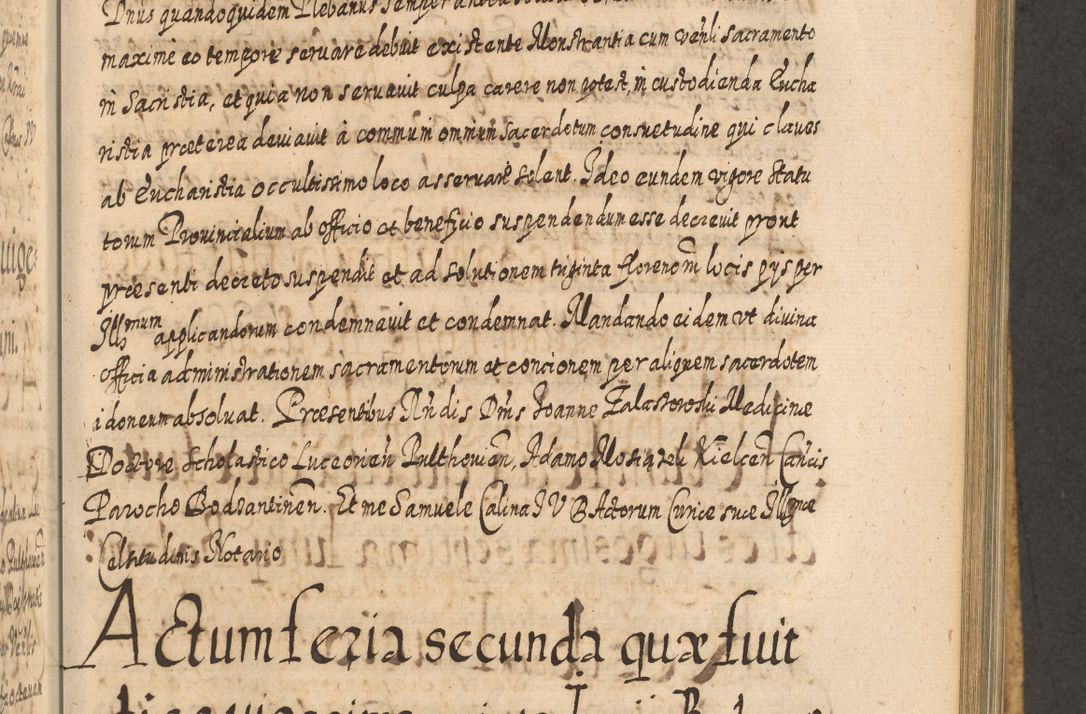 Dnus quandoquidem Plebanus semper
maximè eo tempore seruare debuit existente Monstrantia cum venli sacramento
in Sacristia, et quia non seruauit culpa carere non potest, in custodienda Eucha
ristia præterea deviavit à communi omnium sacerdotum consuetudine qui claues
ab Eucharistia occultissimo loco asseruare solent. Ideo eundem vigore Statu
torum Provincialium ab officio et beneficio suspendendum esse decrevit prout
præsenti decreto suspendit et ad solutionem triginta florenorm locis pijs per
Illmum applicandorum condemnavit et condemnat. Mandando eidem vt divina
officia administrationem sacramentorum et concionem per aliquem sacerdotem
idoneum absoluat. Præsentibus Rndis Dnis Joanne Zalastowski Medicinæ
Doctore, Scholastico Luceorien Pulthovien, Adamo Kielcen Cancis
Parocho Bodsantinen. Et me Samuele Calina J V B Actorum Curiæ suæ Illmæ
Celsitudinis Notario
Actum feria secunda quæ fuit